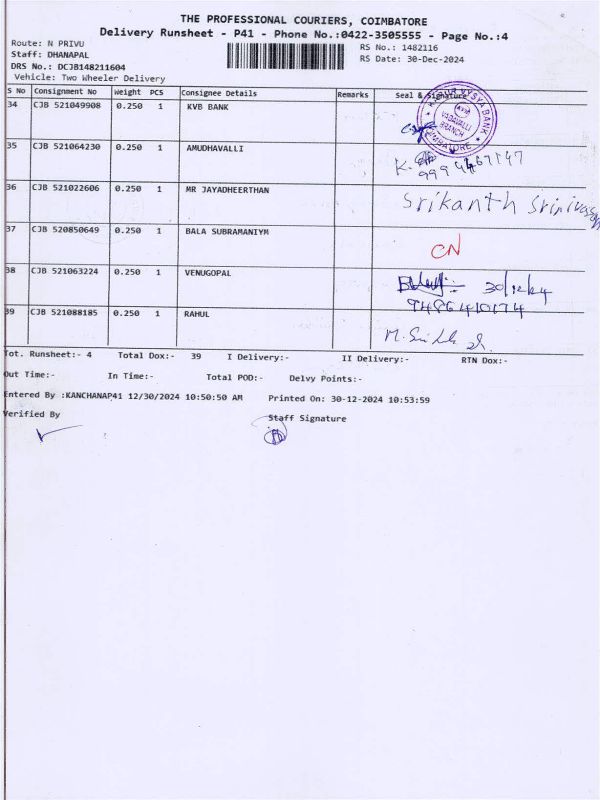 THE PROFESSIONAL COURIERS, COIMBATORE
Delivery Runsheet - P41 - Phone No.:0422-3505555 - Page No.:4
Route: N PRIVU
RS No.: 1482116
Staff: DHANAPAL
RS Date: 30-Dec-2024
DRS No.: DCJB148211604
Vehicle: Two Wheeler Delivery
S No Consignment No Weight PCS Consignee Details Remarks Seal & Signature
34 CJB 521049908 0.250 1 KVB BANK
KARUR VYSYA BANK VADAVALLI BRANCH COIMBATORE
35 CJB 521064230 0.250 1 AMUDHAVALLI
36 CJB 521022606 0.250 1 MR JAYADHEERTHAN Srikanth Srinivasan
37 CJB 520850649 0.250 1 BALA SUBRAMANIYM CN
38 CJB 521063224 0.250 1 VENUGOPAL 30/12/24
39 CJB 521088185 0.250 1 RAHUL
Tot. Runsheet:- 4 Total Dox:- 39 I Delivery:- II Delivery:- RTN Dox:-
Out Time:- In Time:- Total POD:- Delvy Points:-
Entered By :KANCHANAP41 12/30/2024 10:50:50 AM Printed On: 30-12-2024 10:53:59
Verified By Staff Signature